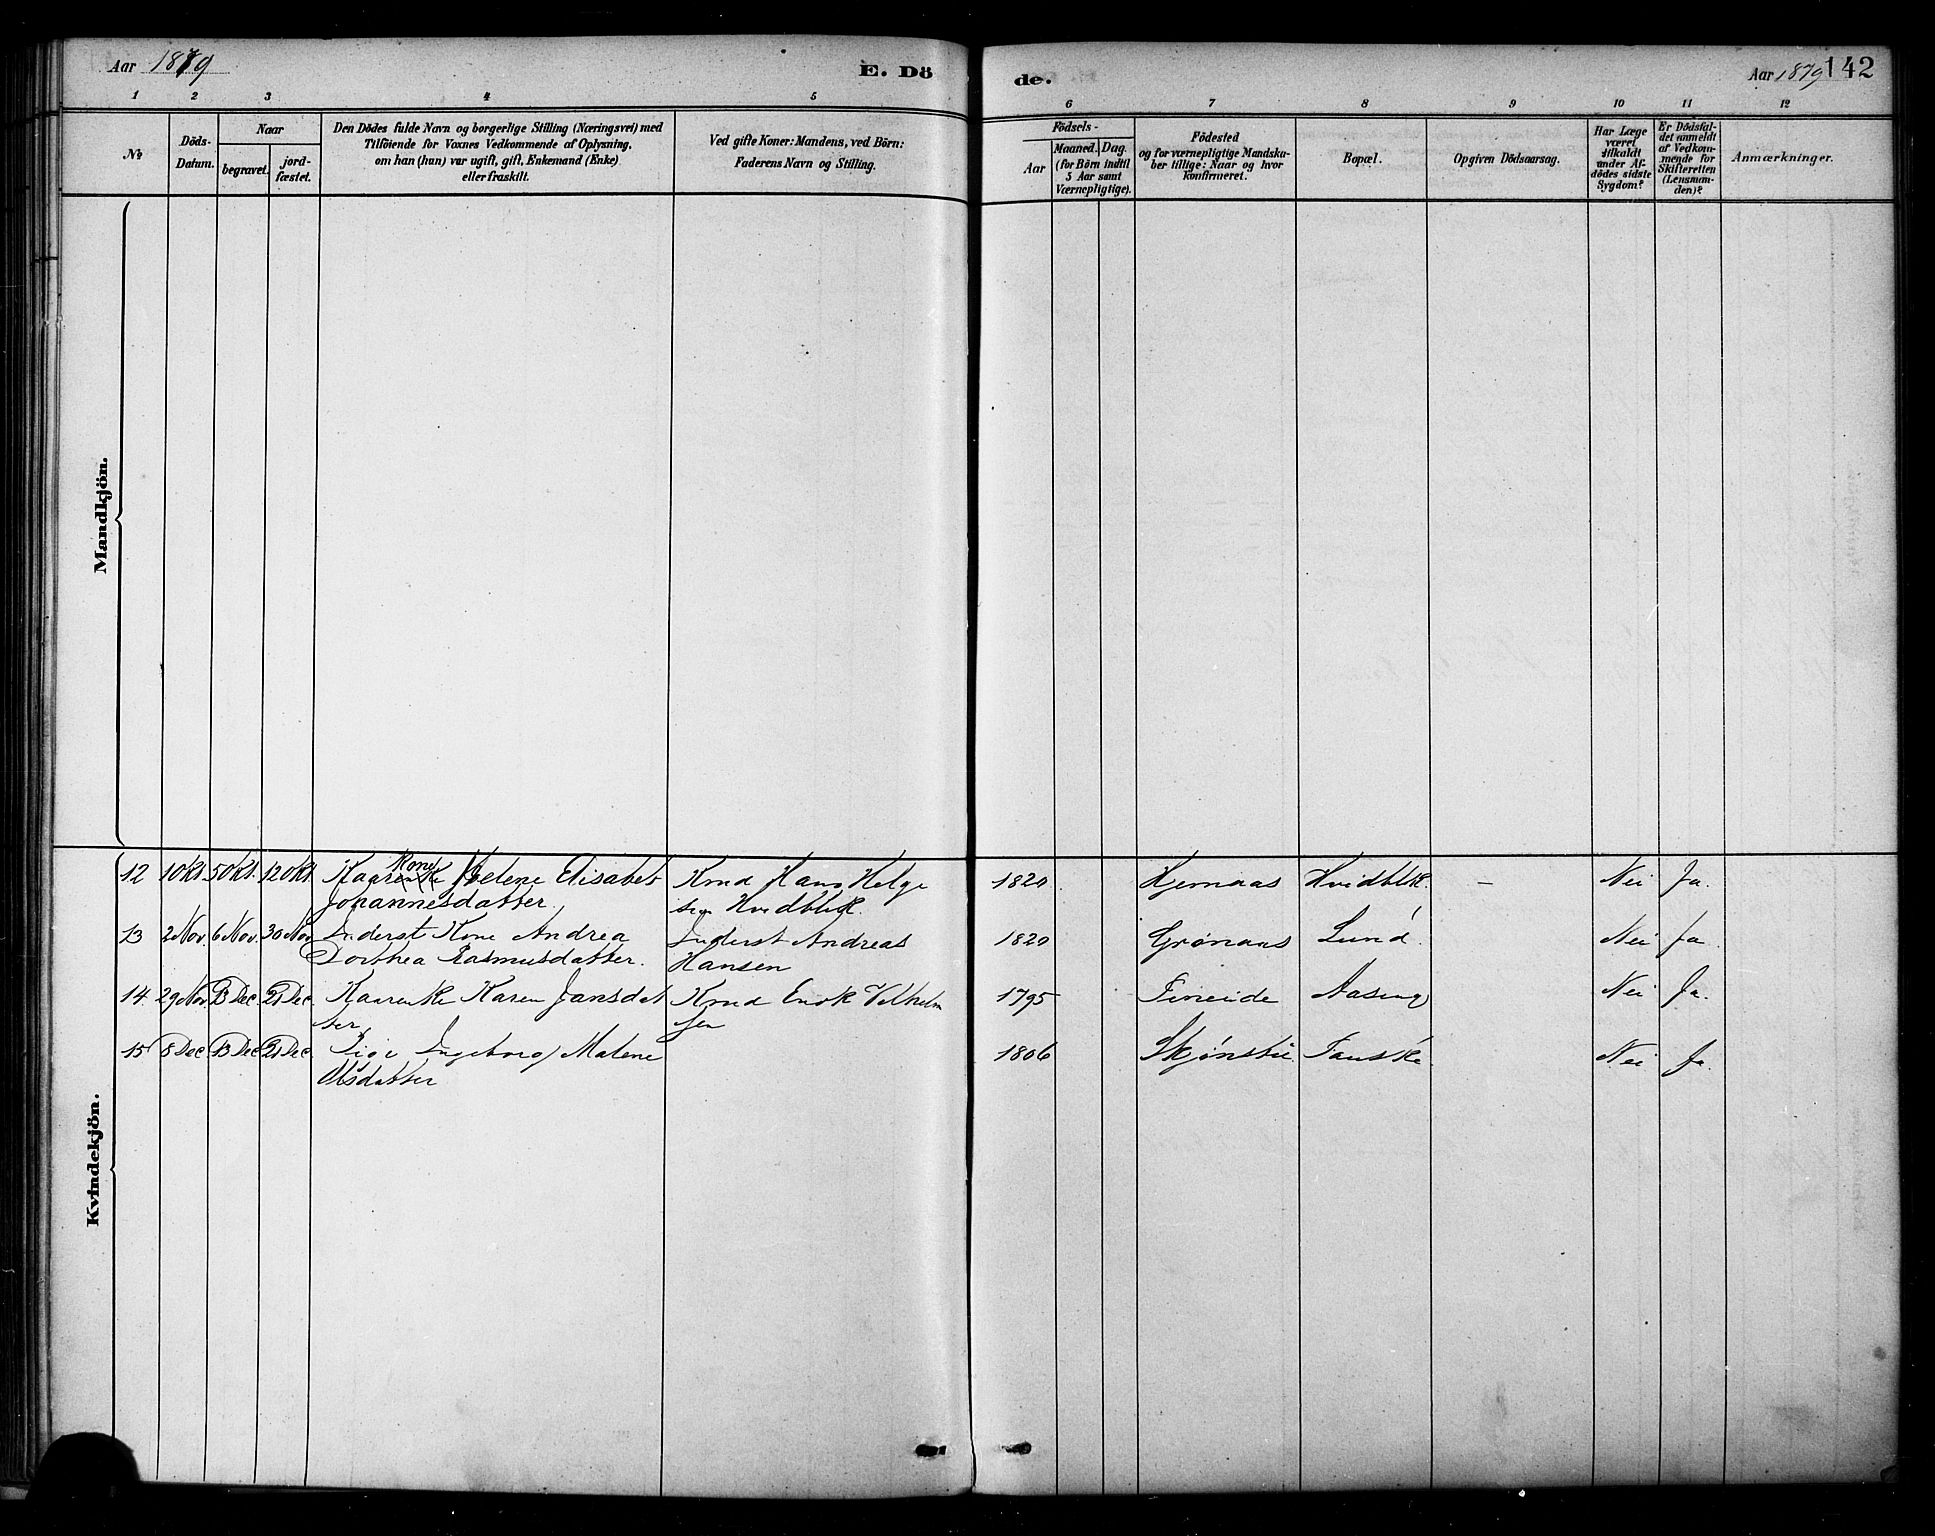 Aar 1879
E. Dö
de.
Aar 1879
142
1 2 3 4 5 6 7 8 9 10 11 12
No
Döds-
Datum.
Naar
begravet.
jord-
fæstet.
Den Dödes fulde Navn og borgerlige Stilling (Næringsvei) med
Tilföiende for Voxnes Vedkommende af Oplysning,
om han (hun) var ugift, gift, Enkemand (Enke)
eller fraskilt.
Ved gifte Koner: Mandens, ved Börn:
Faderens Navn og Stilling.
Födsels-
Aar
Maaned. Dag.
(for Börn indtil
5 Aar samt
Værnepligtige).
Födested
og for værnepligtige Mandska-
ber tillige: Naar og hvor
konfirmeret.
Bopæl.
Opgiven Dödsaarsag.
Har Læge
været
tilkaldt
under Af-
dödes sidste
Sygdom?
Er Dödsfal-
det anmeldt
af Vedkom-
mende for
Skifteretten
(Lensman-
den)?
Anmærkninger.
Mandkjön.
Kvindekjön.
Kone
12 1 Okt 5 Okt. 12 Okt. Kaarenke Helene Elisabet Kmd Hans Helge 1820 Hjemaas Hvidblik. – Nei Ja.
Johannesdatter. sen Hvidblik.
13 2 Nov. 6 Nov. 30 Nov Inderst Kone Andrea Inderst Andreas 1820 Grønaas Lund. Nei Ja
Dorthea Rasmusdatter. Hansen
14. 29 Nov. 13 Dec. 21 Dec. Kaarenke Karen Jansdat Kmd Enok Vilhelm 1795 Fineide Aasing Nei Ja.
ter sen
15 8 Dec. 13 Dec 21 Dec. Pige Ingeborg Malene 1806 Skjønstu Fauske Nei Ja.
Olsdatter